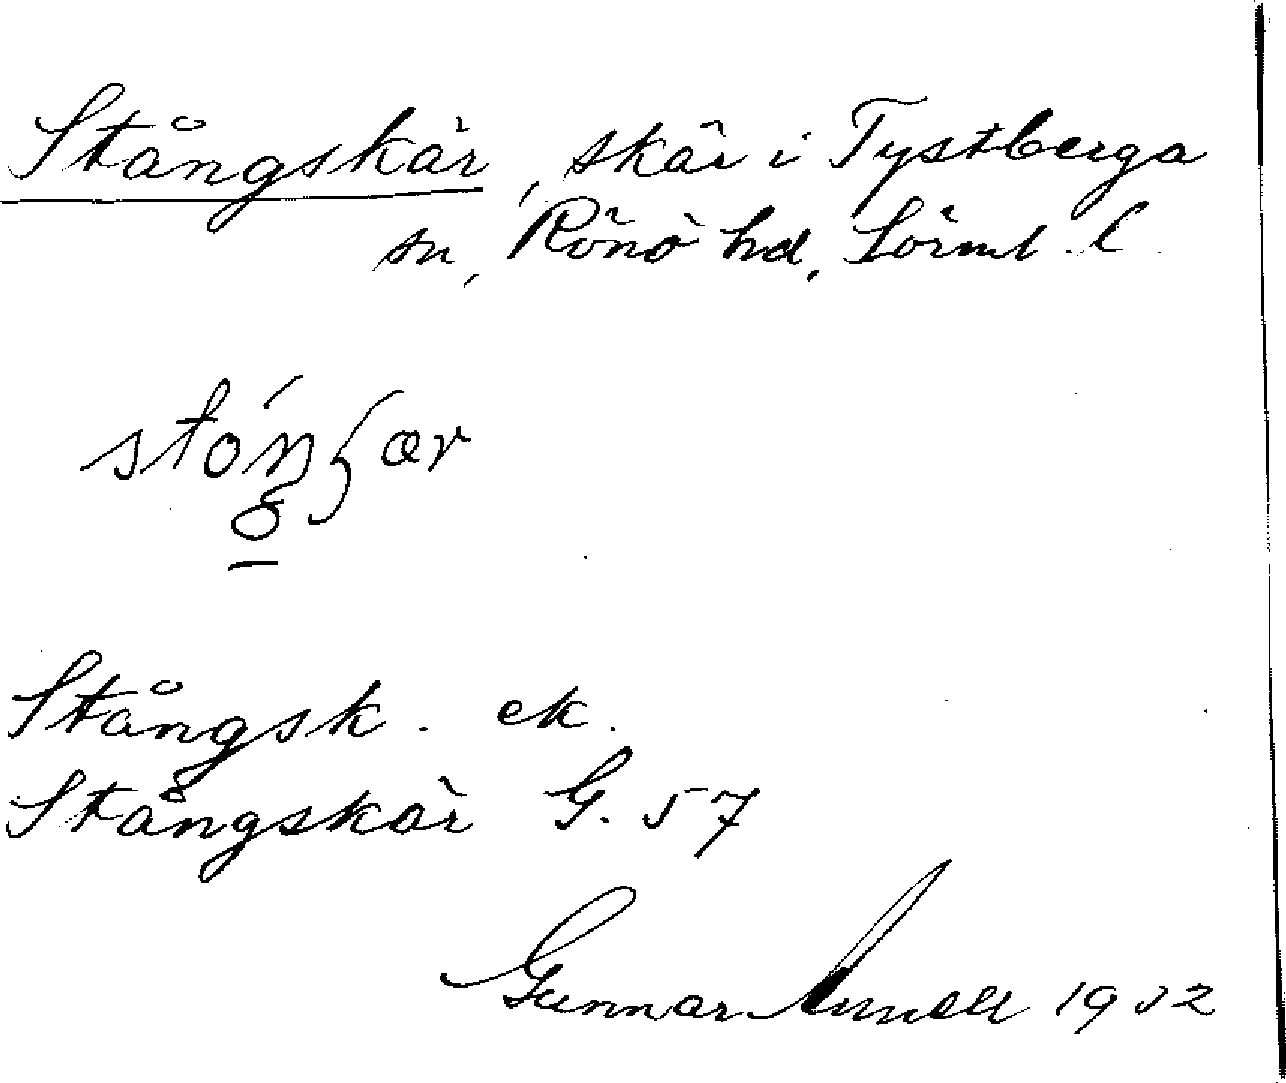 Stångskär, skär i Tystberga
sn, Rönö hd, Sörml. l.
Stångsk. ek.
Stångskär G. 57
Gunnar 1932